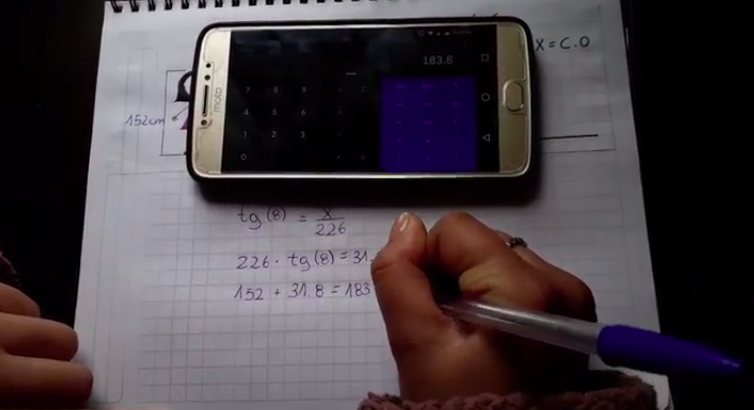 X = C.O
183.8
moto
7 8 9
4 5 6
1 2 3
0
152cm
tg (8) = X
226
226 · tg (8) = 31.
152 + 31.8 = 183